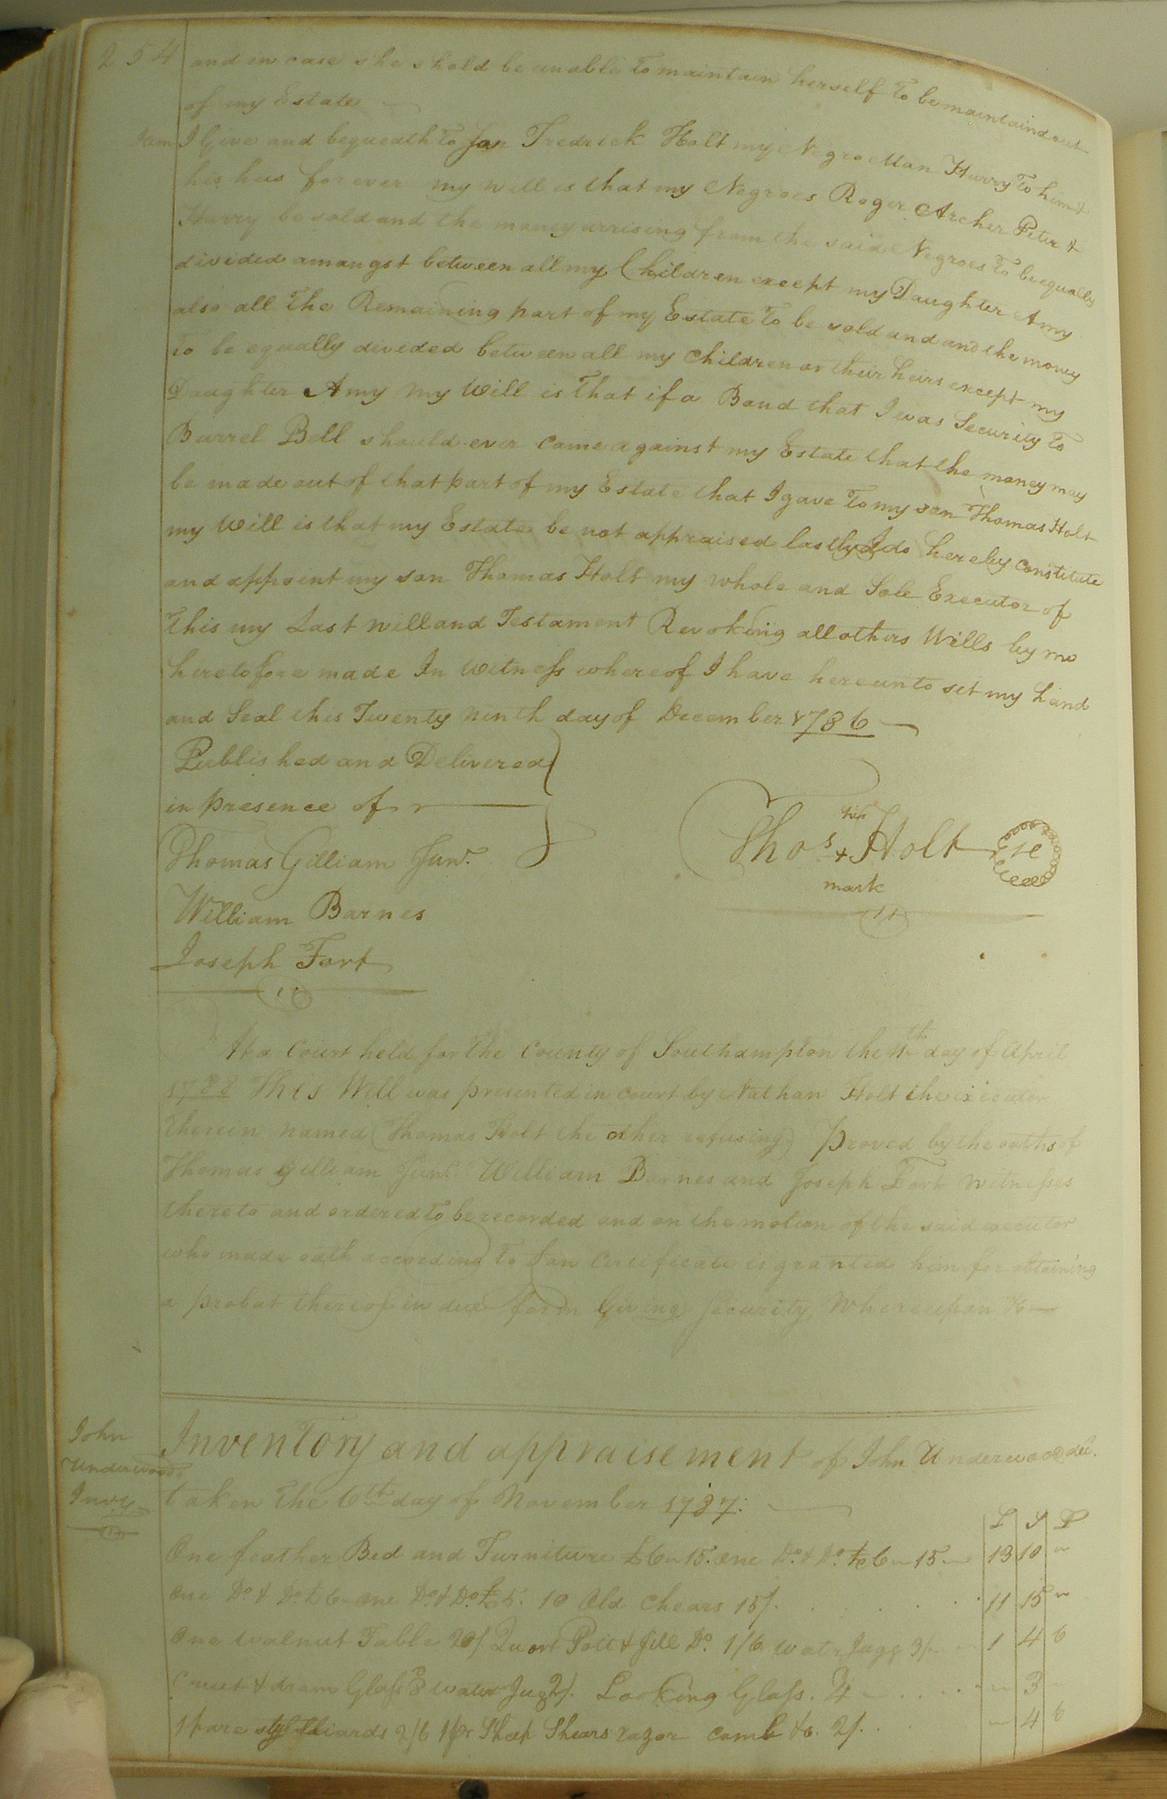 254 and in case she shold be unable to maintain herself to be maintaind out
of my Estate
Item I Give and bequeath to Fredrick Holt my Negro Man Harry to him &
his heirs for ever my will is that my Negroes Roger Archer Peter &
Harry be sold and the money arrising from the said Negroes to be equally
divided amongst between all my Children except my Daughter Amy
also all the Remaining part of my Estate to be sold and and the money
to be equally devided between all my Children or their heirs except my
Daughter Amy my Will is that if a Bond that I was Security to
Burrel Bell should ever came against my Estate that the money may
be made out of that part of my Estate that I gave to my son Thomas Holt
my Will is that my Estate be not appraised lastly I do hereby constitute
and appoint my son Thomas Holt my whole and Sole Executor of
this my Last will and Testament Revoking all others Wills by me
heretofore made In Witness whereof I have hereunto set my hand
and Seal this Twenty ninth day of December 1786
Published and Delivered
in presence of
Thomas Gilliam Junr.
William Barnes
Joseph Fort
his
Thos + Holt
mark
At a Court held for the County of Southampton the day of April
1788 This Will was presented in court by Nathan Holt the executor
therein named (Thomas Holt the other refusing) proved by the oaths of
Thomas Gilliam Junr. William Barnes and Joseph Fort witnesses
thereto and ordered to be recorded and on the motion of the said executor
who made oath according to Certificate is granted him for obtaining
a probat thereof in due form Giving Security Whereupon &c
John
Underwoods
Invy
Inventory and appraisement of John Underwood decd.
taken the 6th day of November 1787:
L S D
One feather Bed and Furniture £6-15. one Do. & Do. £6-15 13 10
One Do & Do £6 one Do & Do £5 10 Old Chears 15/. 11 15
One walnut Table 20/ Quart Pott & Jill Do. 1/6 water Jugg 3/ 1 4 6
Cruet & dram Glass & water Jug 2/. Looking Glass. 3
1 pare stilliards 2/6 1 pr Sheep Shears razor comb &c. 2/. 4 6